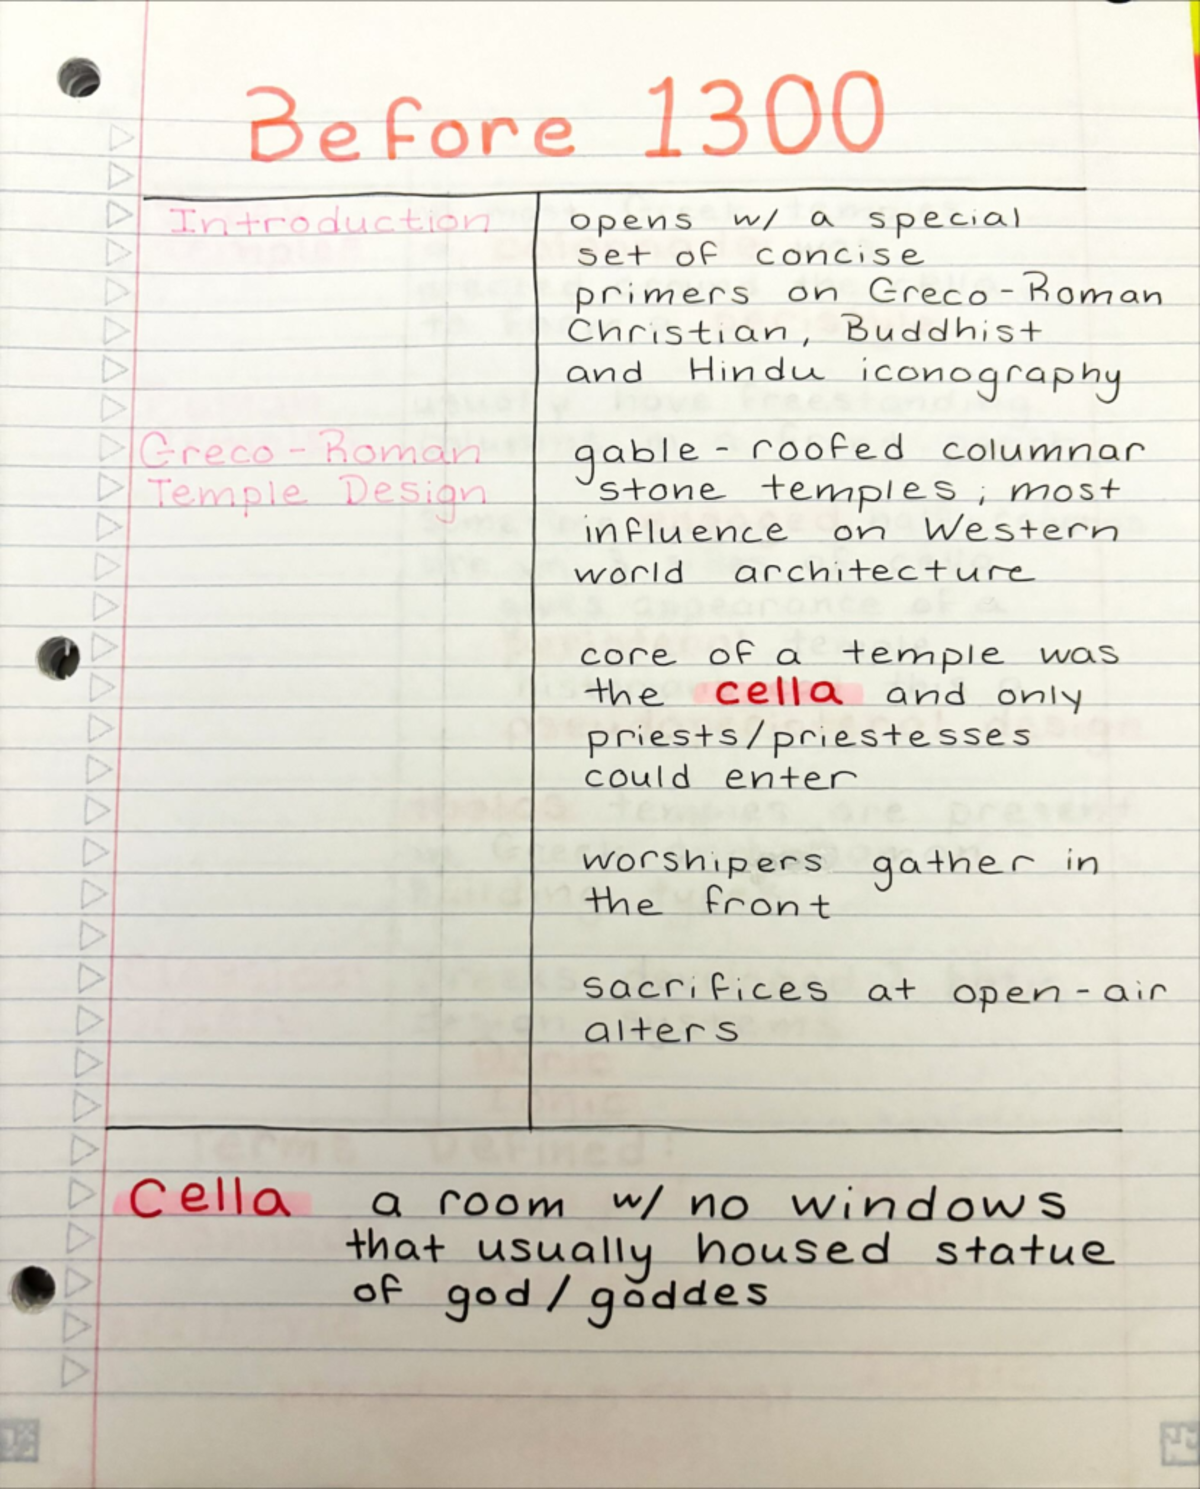 Before 1300
Introduction
opens w/ a special
set of concise
primers on Greco-Roman
Christian, Buddhist
and Hindu iconography
Greco-Roman
Temple Design
gable-roofed columnar
stone temples; most
influence on Western
world architecture
core of a temple was
the cella and only
priests/priestesses
could enter
worshipers gather in
the front
sacrifices at open-air
alters
Cella a room w/ no windows
that usually housed statue
of god/goddes